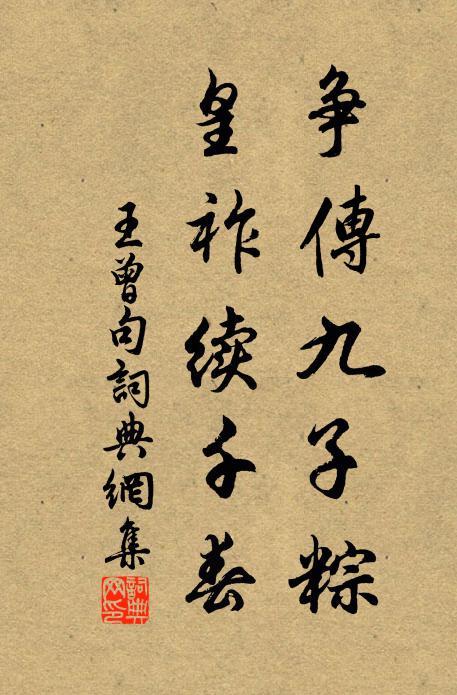 争傳九子粽
皇祚续千春
王曾句詞典網集
詞典网印